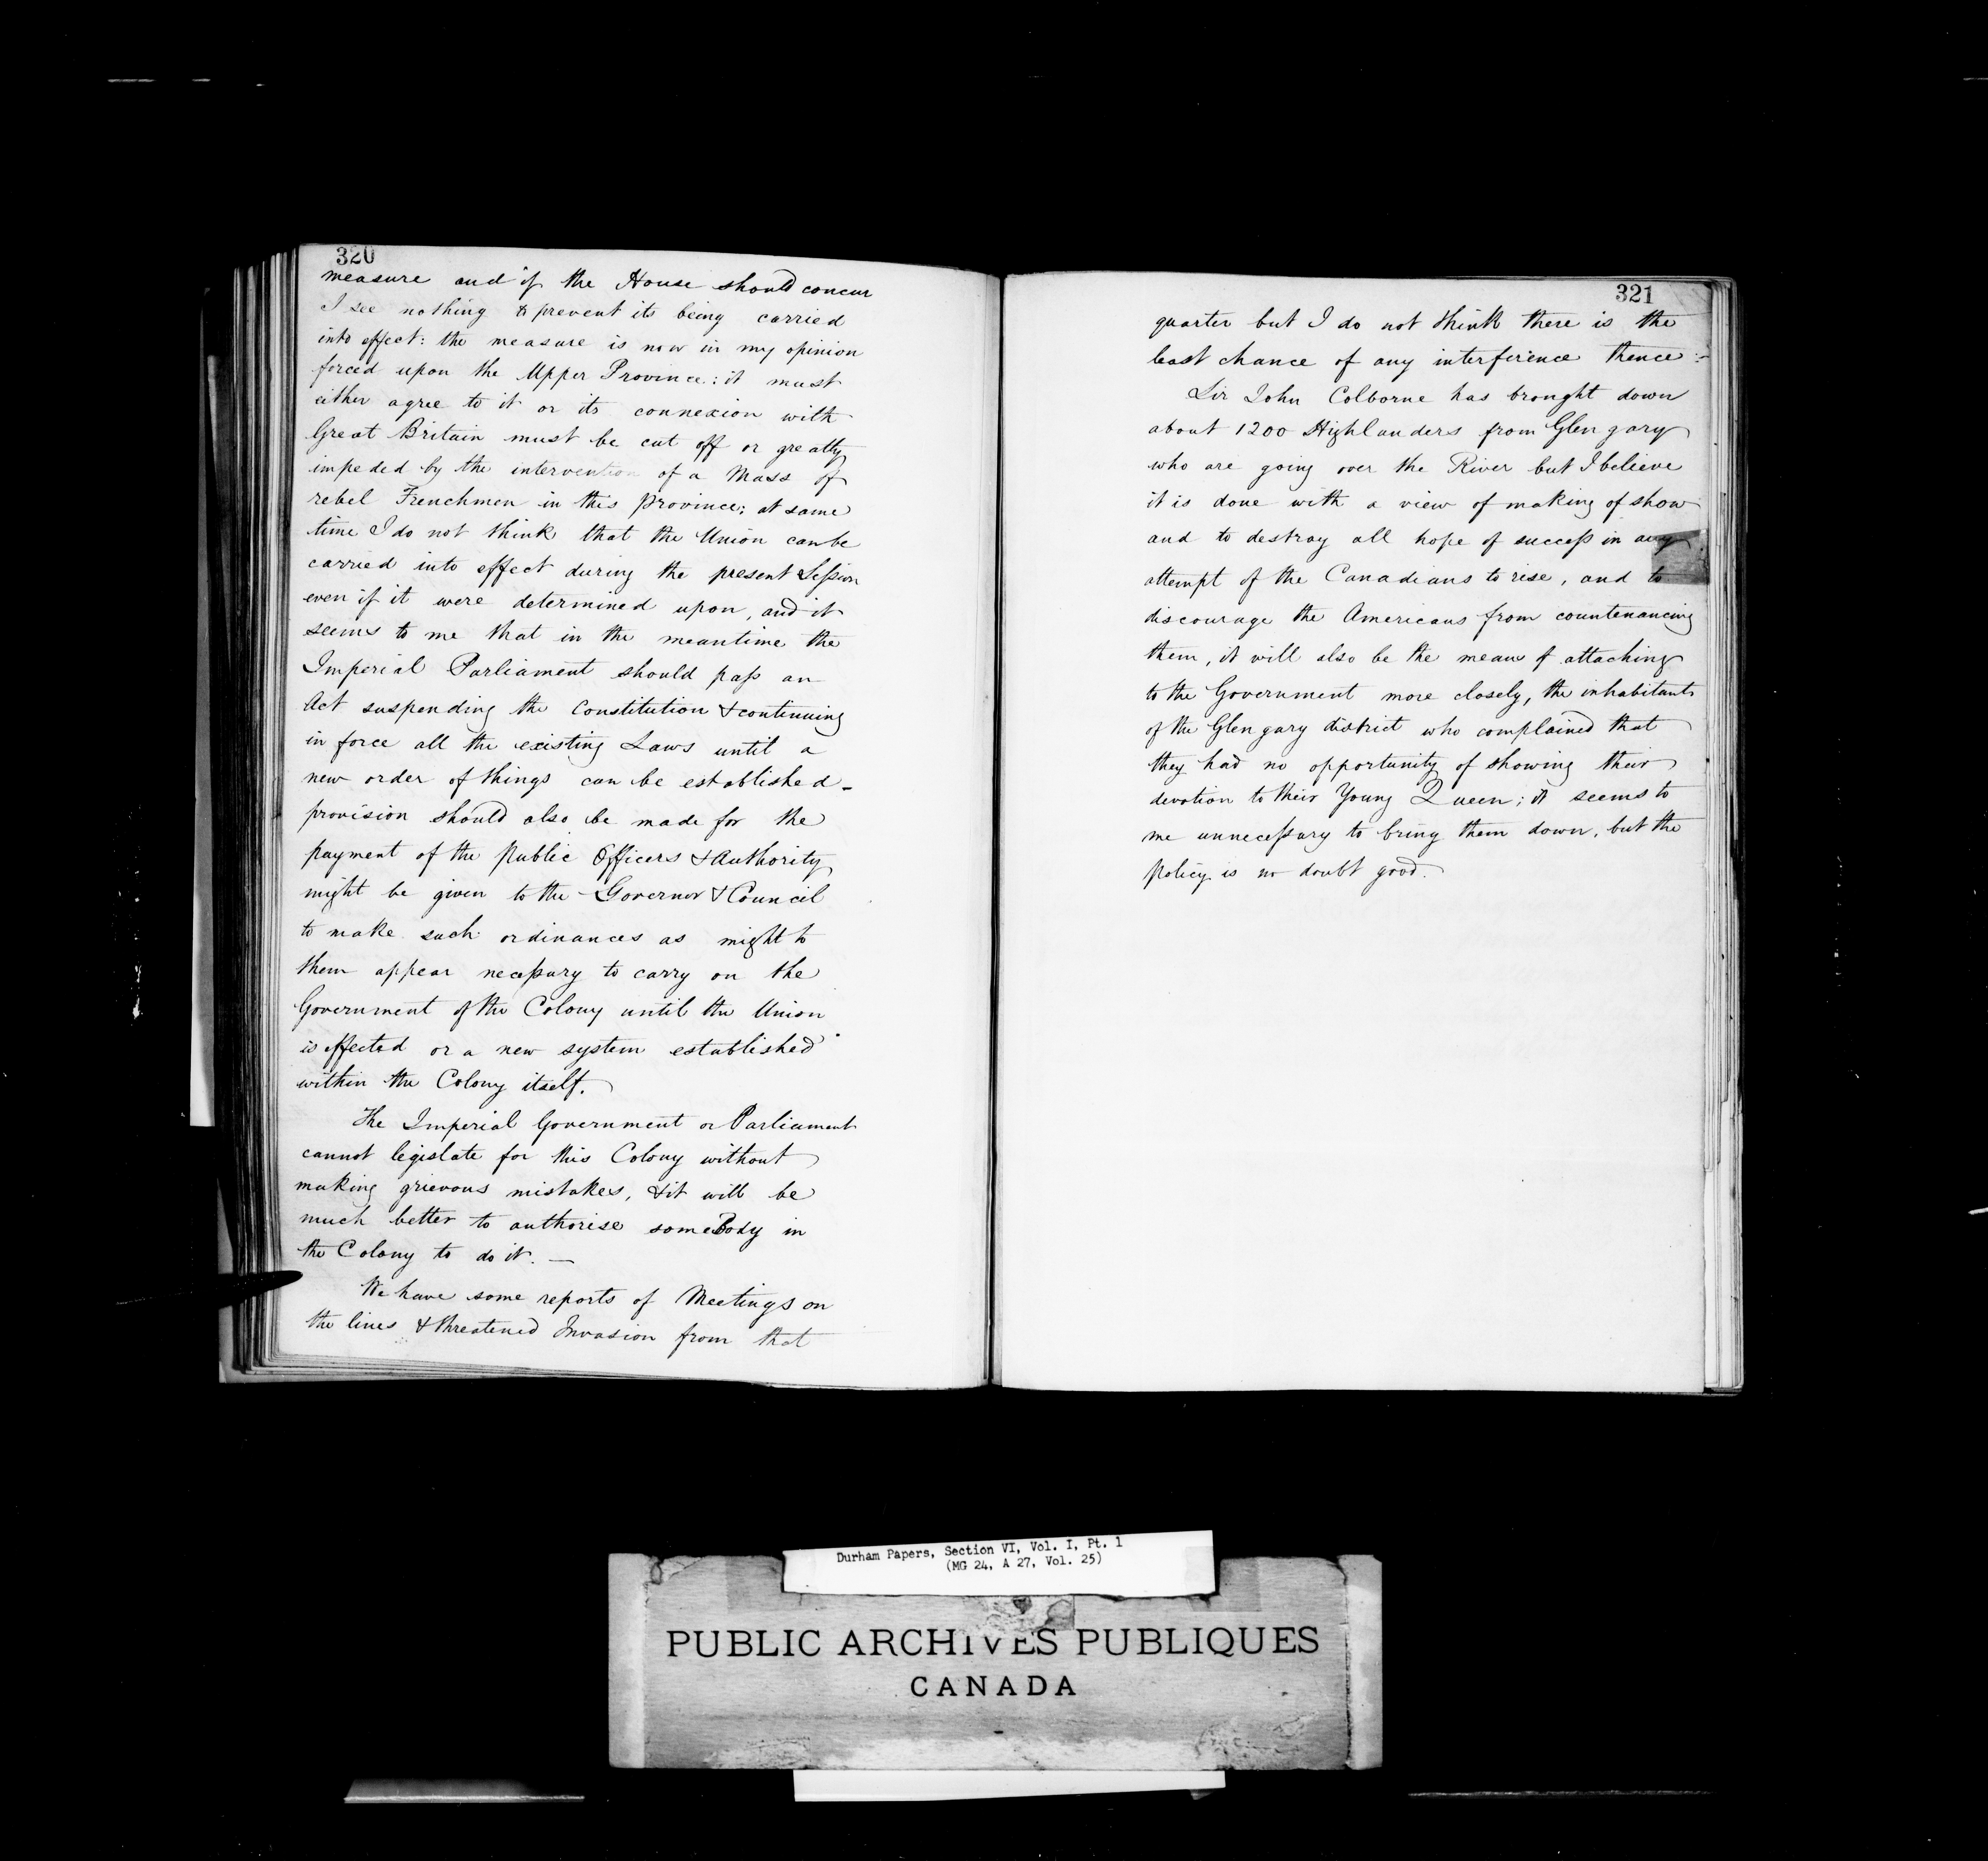 320
measure and if the House should concur
I see nothing to prevent its being carried
into effect: the measure is now in my opinion
forced upon the Upper Province: it must
either agree to it or its connexion with
Great Britain must be cut off or greatly
impeded by the intervention of a Mass of
rebel Frenchmen in this province; at same
time I do not think that the Union can be
carried into effect during the present Session
even if it were determined upon, and it
seems to me that in the meantime the
Imperial Parliament should pass an
Act suspending the Constitution & continuing
in force all the existing Laws until a
new order of things can be established -
provision should also be made for the
payment of the public Officers & Authority
might be given to the Governor & Council
to make such ordinances as might to
them appear necessary to carry on the
Government of the Colony until the Union
is effected or a new system established
within the Colony itself.
The Imperial Government or Parliament
cannot legislate for this Colony without
making grievous mistakes, & it will be
much better to authorise someBody in
the Colony to do it. —
We have some reports of Meetings on
the lines & threatened Invasion from that
321
quarter but I do not think there is the
least chance of any interference thence :-
Sir John Colborne has brought down
about 1200 Highlanders from Glengary
who are going over the River but I believe
it is done with a view of making of show
and to destroy all hope of success in any
attempt of the Canadians to rise, and to
discourage the Americans from countenancing
them, it will also be the means of attaching
to the Government more closely, the inhabitants
of the Glengary district who complained that
they had no opportunity of showing their
devotion to their Young Queen; it seems to
me unnecessary to bring them down, but the
policy is no doubt good.
Durham Papers, Section VI, Vol. I, Pt. 1
(MG 24, A 27, Vol. 25)
PUBLIC ARCHIVES PUBLIQUES
CANADA